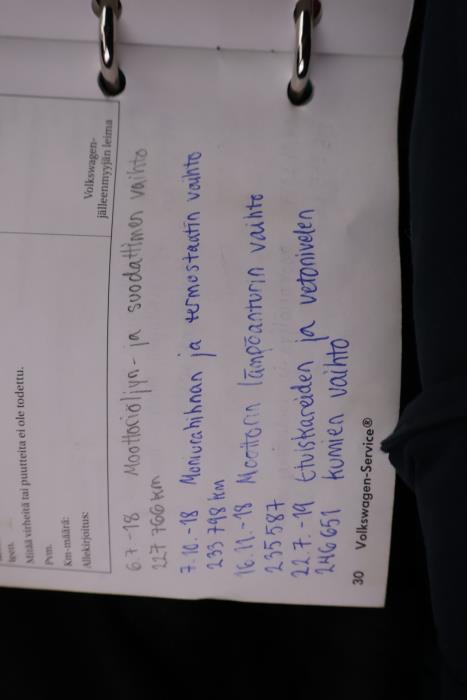 Mitään virheitä tai puutteita ei ole todettu.
Pvm.
Km-määrä:
Allekirjoitus:
Volkswagen-
jälleenmyyjän leima
6.7.-18 Moottoriöljyn- ja suodattimen vaihto
227 766 km
7.10.-18 Moniurahihnan ja termostaatin vaihto
233 798 km
16.11.-18 Moottorin lämpöanturin vaihto
235 587
22.7.-19 Etuiskareiden ja vetonivelen
246 651 kumien vaihto
30 Volkswagen-Service®